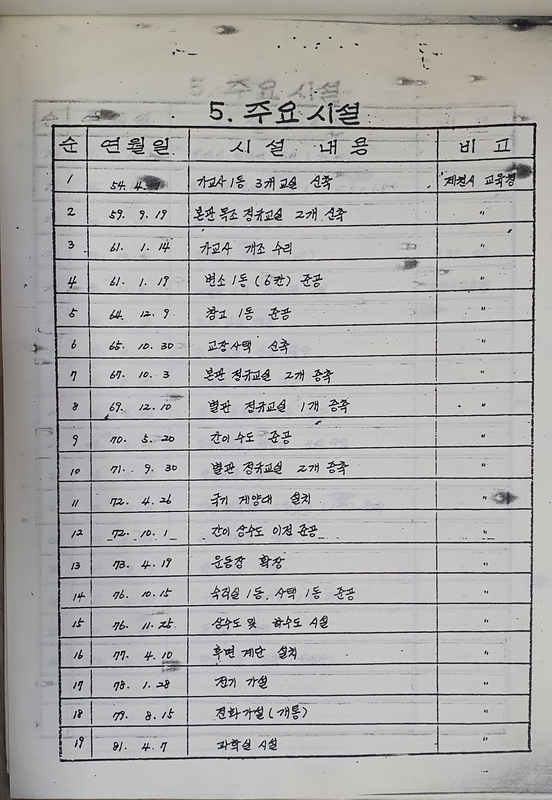 5. 주요 시설
순 연월일 시설 내용 비고
1 54. 4. 가교사 1동 3개 교실 신축 제천시 교육청
2 59. 9. 19 본관 목조 정규교실 2개 신축 〃
3 61. 1. 14 가교사 개조 수리 〃
4 61. 1. 19 변소 1동 (6칸) 준공 〃
5 64. 12. 9 창고 1동 준공 〃
6 65. 10. 30 교장사택 신축 〃
7 67. 10. 3 본관 정규교실 2개 증축 〃
8 69. 12. 10 별관 정규교실 1개 증축 〃
9 70. 5. 20 간이 수도 준공 〃
10 71. 9. 30 별관 정규교실 2개 증축 〃
11 72. 4. 26 국기 게양대 설치 〃
12 72. 10. 1 간이 상수도 이전 준공 〃
13 73. 4. 19 운동장 확장 〃
14 76. 10. 15 숙직실 1동. 사택 1동 준공 〃
15 76. 11. 25 상수도 및 하수도 시설 〃
16 77. 4. 10 후면 계단 설치 〃
17 78. 1. 28 전기 가설 〃
18 79. 8. 15 전화가설 (개통) 〃
19 81. 4. 7 과학실 시설 〃